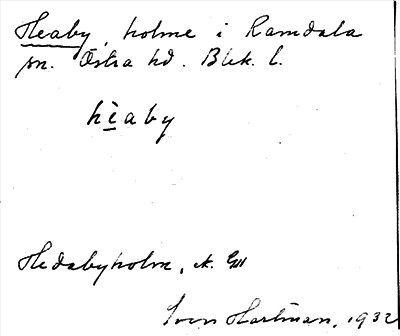 Heaby, holme i Ramdala
sn. Östra hd. Blek. l.
hèaby
Hedabyholm, ek. GM
Sven Hartman, 1932